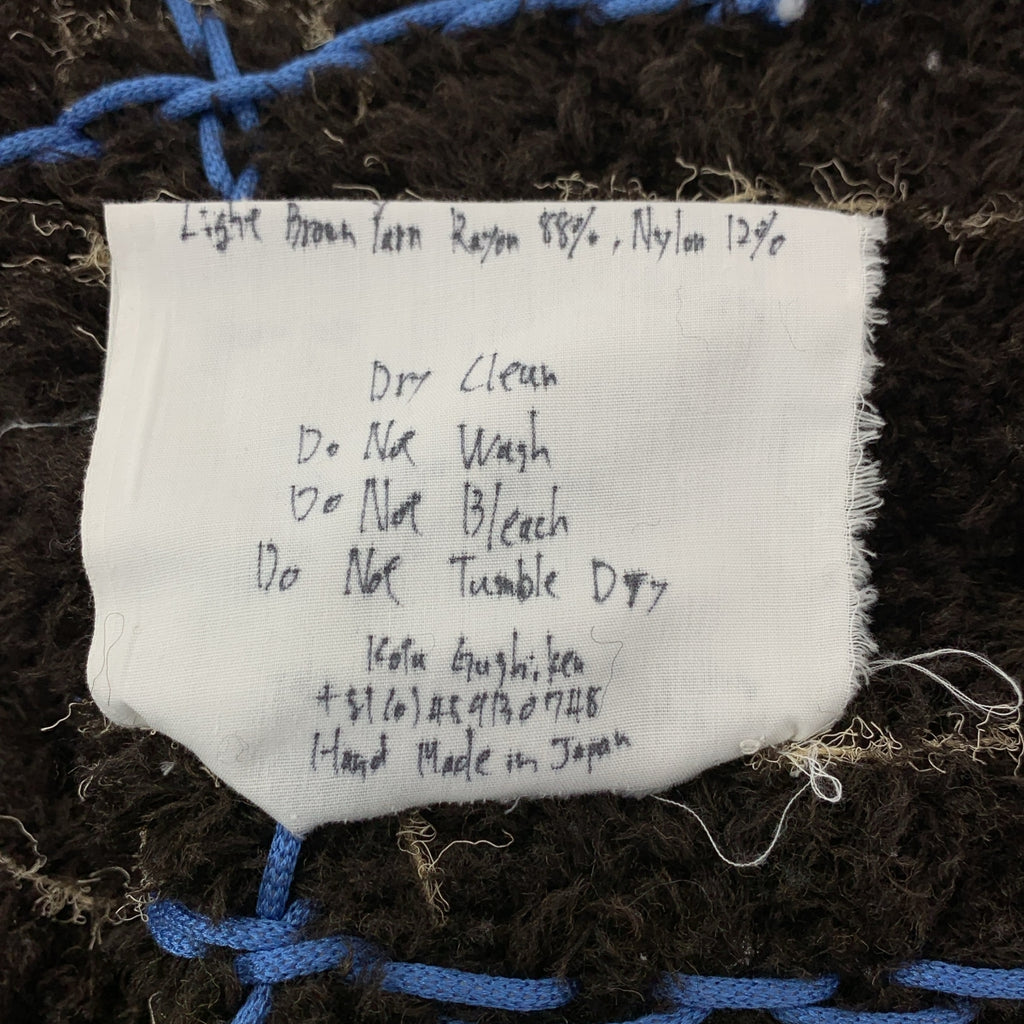 Light Brown Yarn Rayon 88%, Nylon 12%
Dry Clean
Do Not Wash
Do Not Bleach
Do Not Tumble Dry
Kota Gushiken
Hand Made in Japan